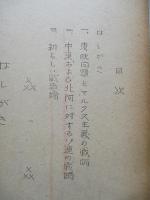 目次
はしがき
一、東欧問題とマルクス主義の戦略
二、中共および北阿に対するソ連の戦略
三、新らしい戦略戦
××
はしがき
××